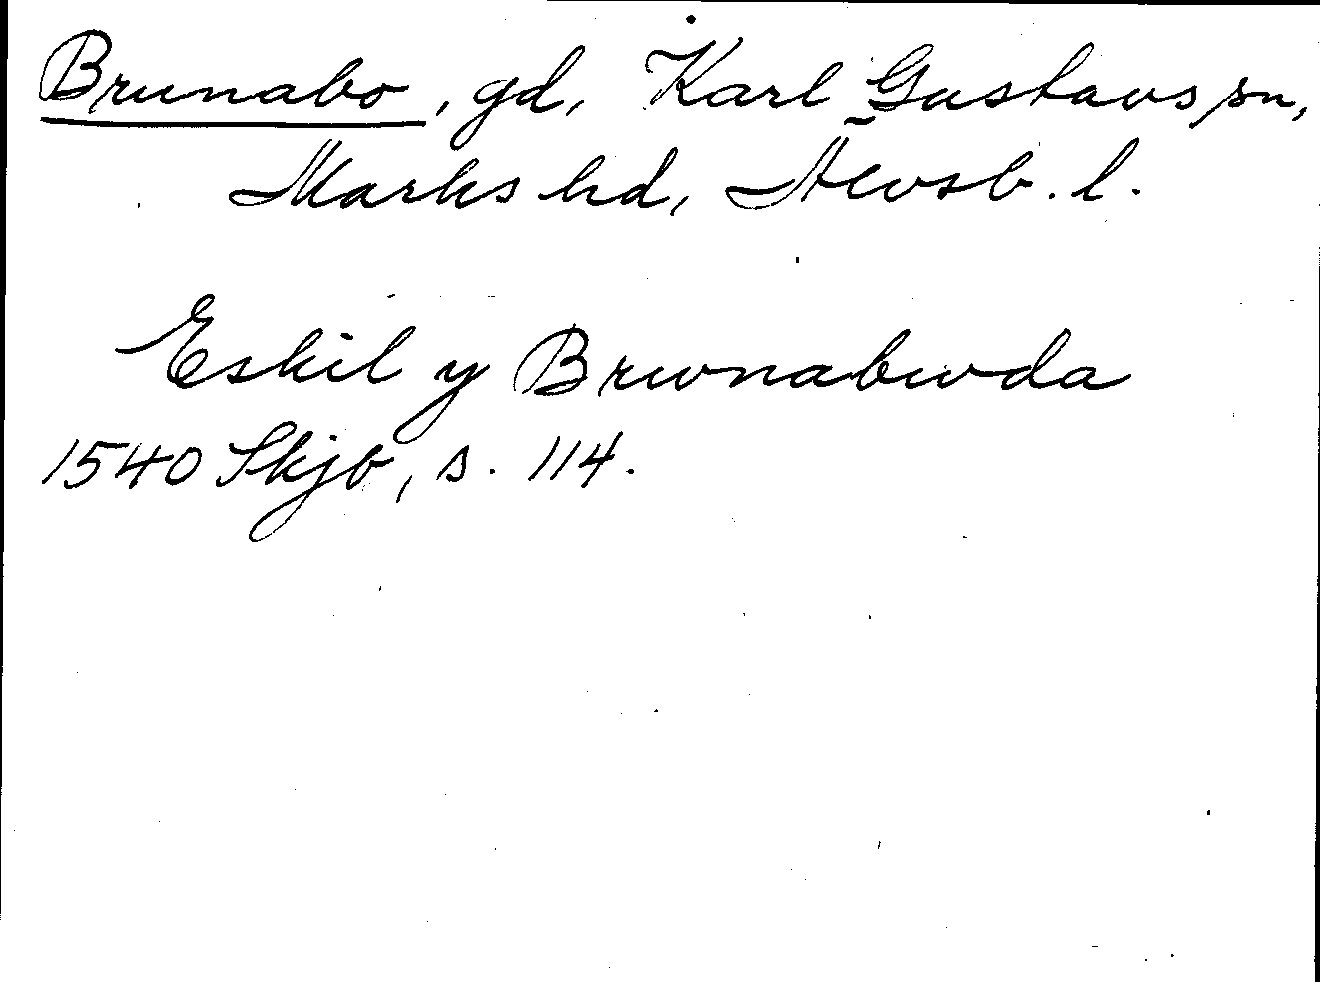 Brunabo, gd, Karl Gustavs sn,
Marks hd, Älvsb. l.
Eskil y Brwnabwda
1540 Skjb, s. 114.